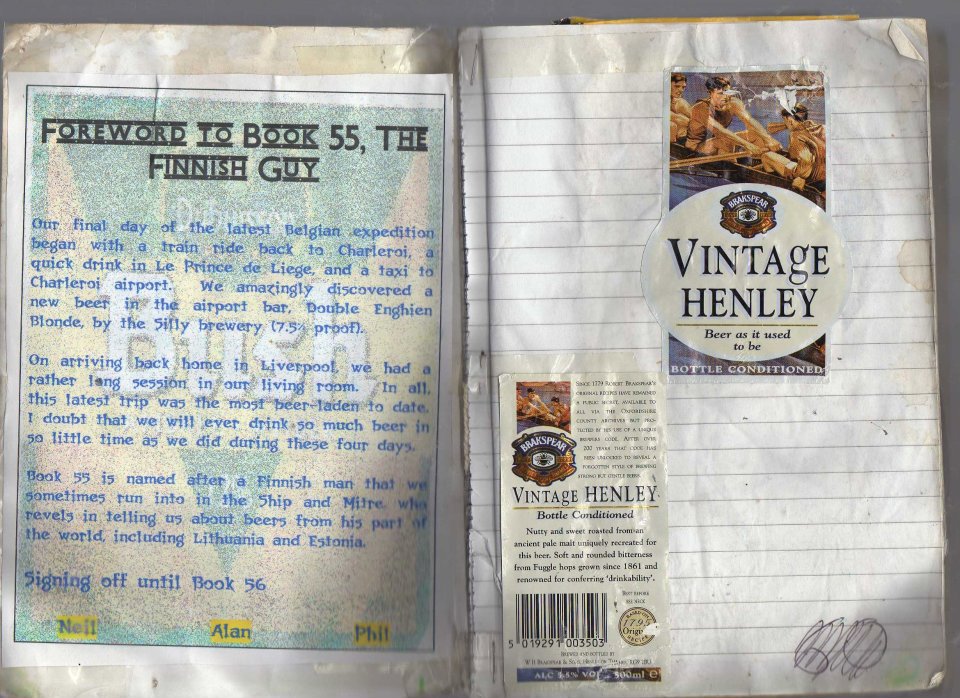 Foreword to Book 55, The
Finnish Guy
Bush
Our final day of the latest Belgian expedition
began with a train ride back to Charleroi, a
quick drink in Le Prince de Liege, and a taxi to
Charleroi airport. We amazingly discovered a
new beer in the airport bar, Double Enghien
Blonde, by the Silly brewery (7.5% proof).
On arriving back home in Liverpool, we had a
rather long session in our living room. In all,
this latest trip was the most beer-laden to date.
I doubt that we will ever drink so much beer in
so little time as we did during these four days.
Book 55 is named after a Finnish man that we
sometimes run into in the Ship and Mitre, who
revels in telling us about beers from his part of
the world, including Lithuania and Estonia.
Signing off until Book 56
Neil Alan Phil
BRAKSPEAR
VINTAGE
HENLEY
Beer as it used
to be
BOTTLE CONDITIONED
SINCE 1779 ROBERT BRAKSPEAR'S
ORIGINAL RECIPES HAVE REMAINED
A PUBLIC SECRET, AVAILABLE TO
ALL VIA THE OXFORDSHIRE
COUNTY ARCHIVES BUT PRO-
TECTED BY HIS USE OF A UNIQUE
BREWERS CODE. AFTER OVER
200 YEARS THAT CODE HAS
BEEN UNLOCKED TO REVEAL A
FORGOTTEN STYLE OF BREWING
STRONG BUT GENTLE BEERS.
BRAKSPEAR
VINTAGE HENLEY
Bottle Conditioned
Nutty and sweet roasted from an
ancient pale malt uniquely recreated for
this beer. Soft and rounded bitterness
from Fuggle hops grown since 1861 and
renowned for conferring 'drinkability'.
BEST BEFORE
SEE NECK
BASED ON A
179
Orig
RECIPE
5 019291 003503
BREWED AND BOTTLED BY
W.H. BRAKSPEAR & SONS, HENLEY ON THAMES, RG9 2BU
ALC 5.5% VOL 500ml e